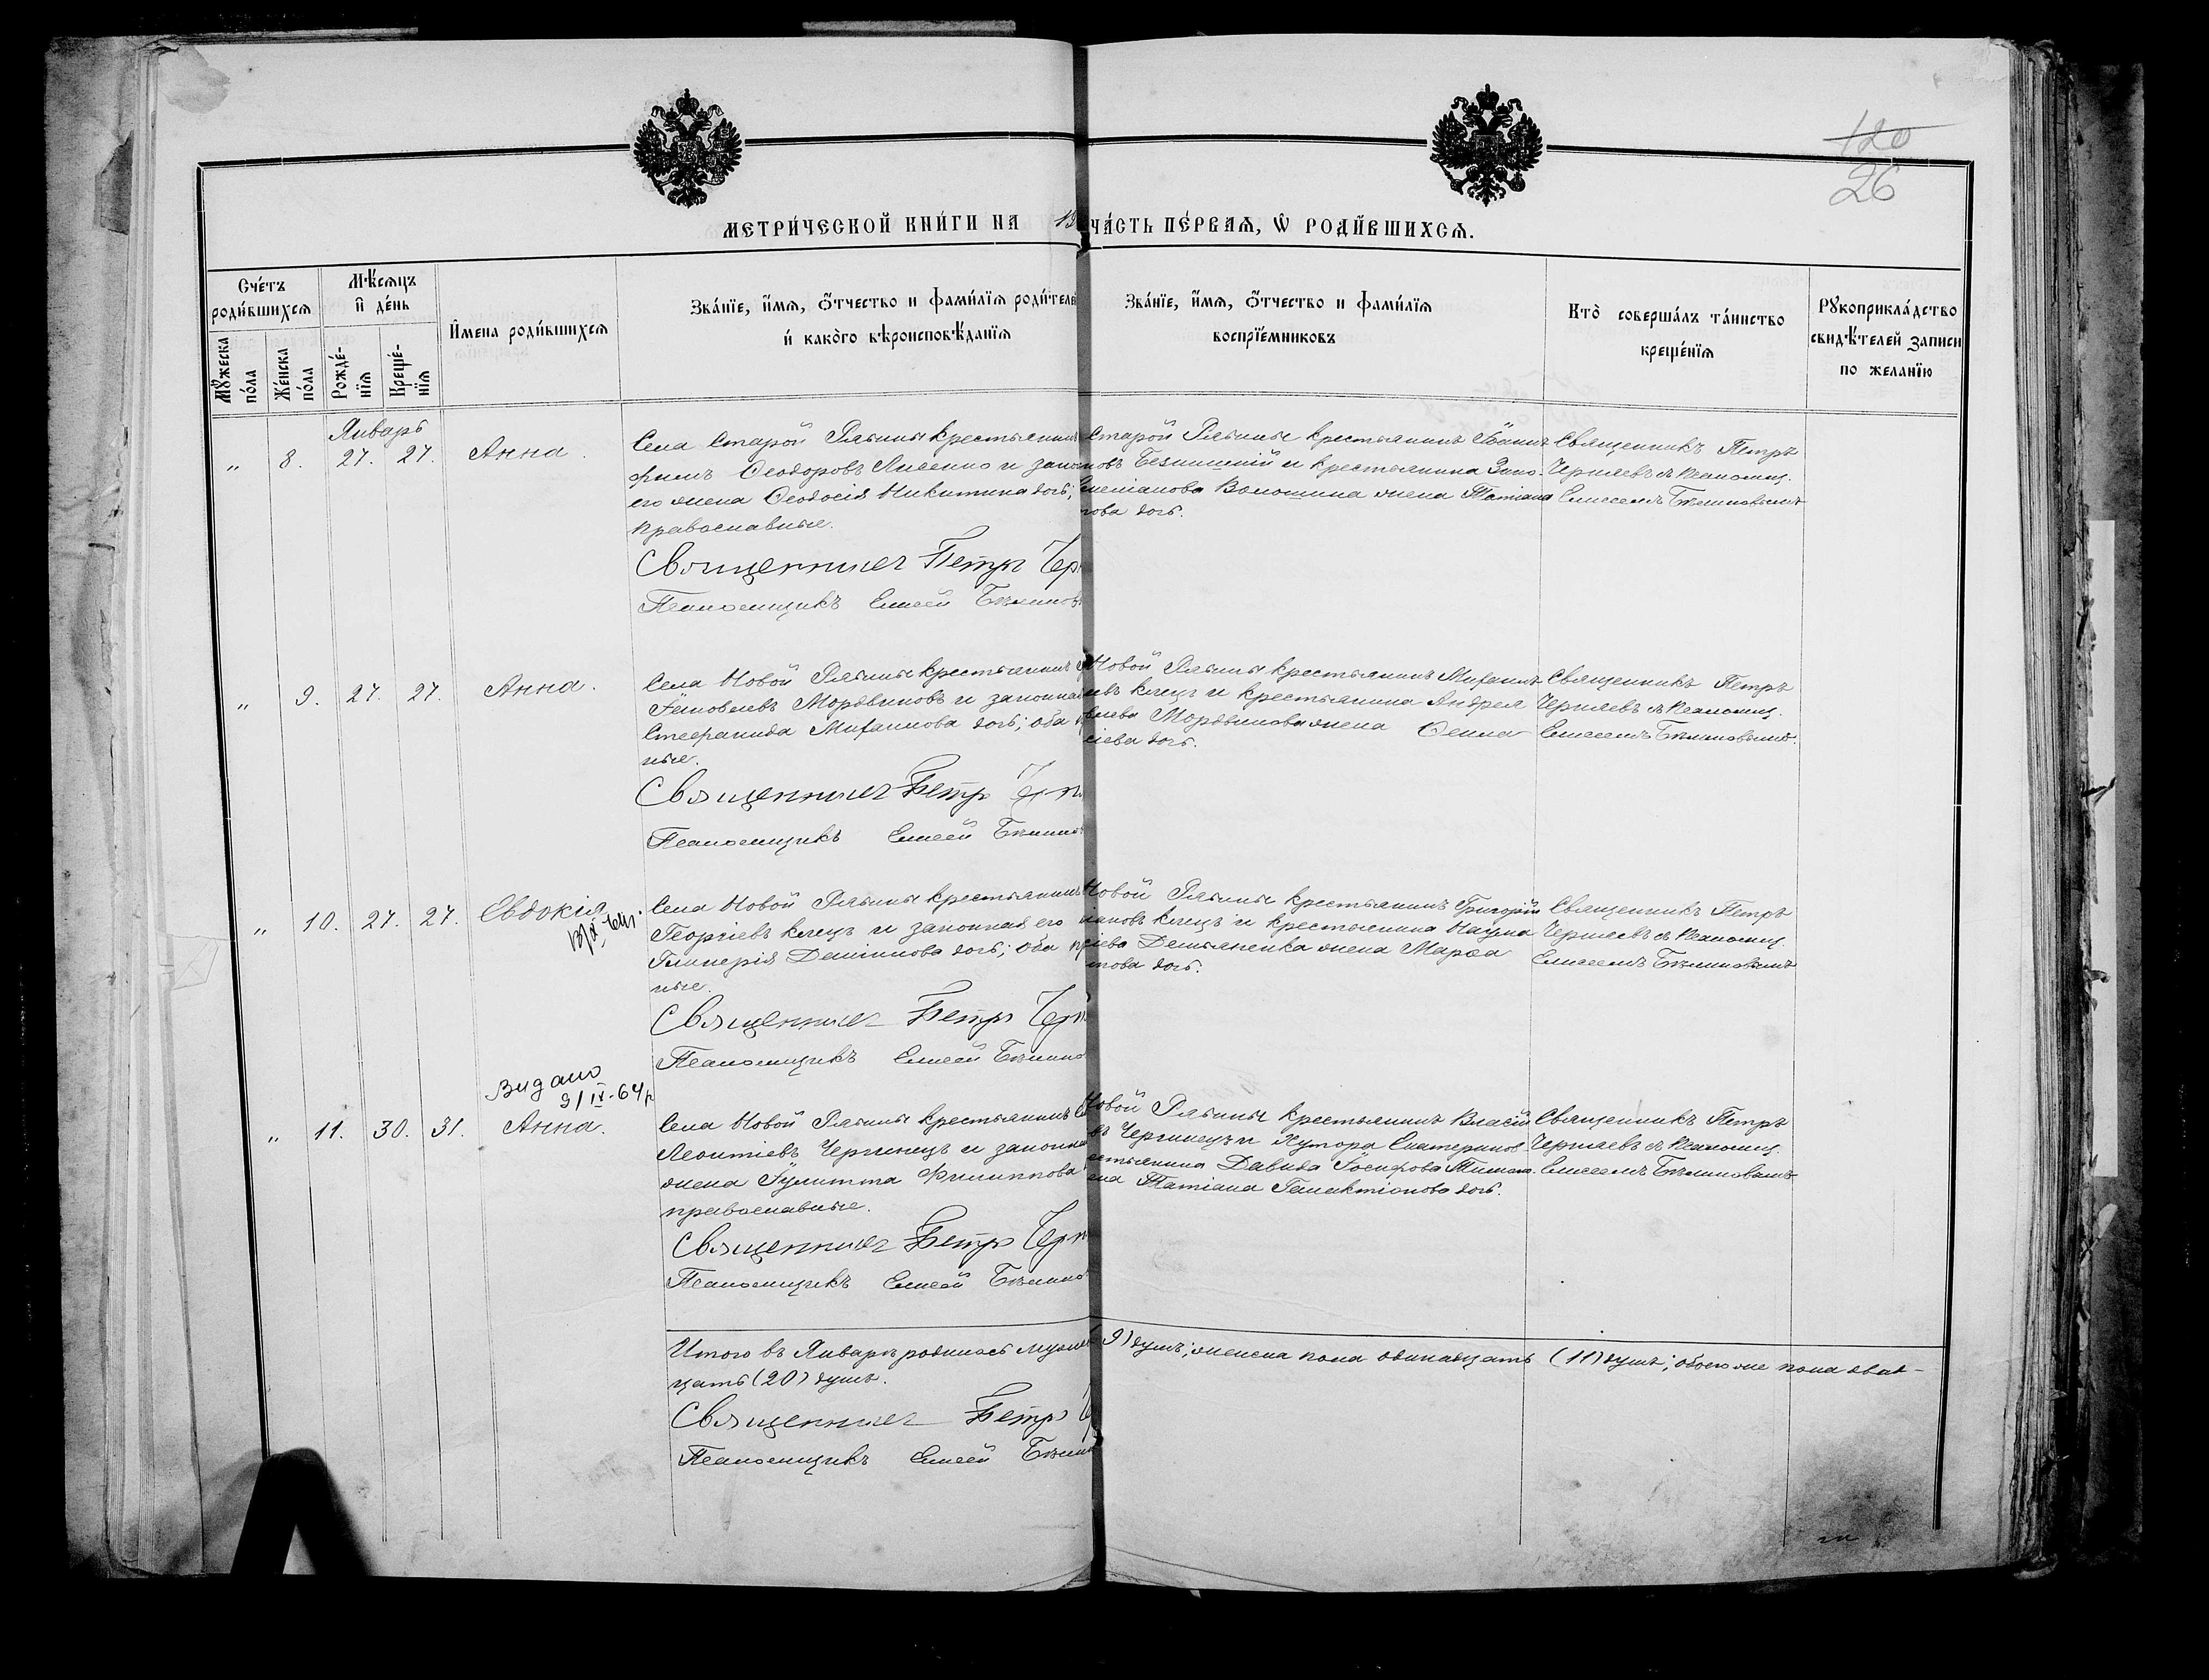 120
26
МЕТРИ́ЧЕСКОЙ КНИ́ГИ НА 19
ЧА́СТЬ ПЕ́РВАѦ, Ѡ҆ РОДИ́ВШИХСѦ.
Сче́тъ роди́вшихсѧ
Мꙋ́жеска по́ла
Же́нска по́ла
Мѣ́сѧцъ и҆ де́нь
Рожде́-нїѧ
Креще́-нїѧ
И҆мена роди́вшихсѧ
Зва́нїе, и҆́мѧ, ѻ҆́тчество и фами́лїѧ роди́теле
и҆ како́гѡ вѣроисповѣ́данїѧ
Зва́нїе, и҆́мѧ, ѻ҆́тчество и фами́лїѧ
воспрїе́мниковъ
Кто̀ соверша́лъ та́инство
креще́нїѧ
Рꙋкоприкла́дство
свидѣ́телей записи
по жела́нїю
Январь
„ 8. 27. 27. Анна.
Села Старой Рябины крестьянинъ
Ѳеодоровъ Лисенко и закон
его жена Ѳеодосія Никитина дочь;
православные.
Священникъ Петръ Чер
Псаломщикъ Елисей Бѣлинов
Старой Рябины крестьянинъ Іоаннъ
новъ и крестьянина
Волошина жена Татіана
нова дочь.
Священникъ Петръ
Черняевъ съ псаломщ.
Елисеемъ Бѣлиновымъ
„ 9. 27. 27. Анна.
Села Новой Рябины крестьянинъ
Іаковлевъ Мордвиновъ и законная
Стефанида Михаилова дочь; оба
ные.
Священникъ Петръ Чер
Псаломщикъ Елисей Бѣлино
Новой Рябины крестьянинъ Михаилъ
евъ Клецъ и крестьянина Андрея
влева Мордвинова жена Ѳекла
сіева дочь.
Священникъ Петръ
Черняевъ съ псаломщ.
Елисеемъ Бѣлиновымъ.
„ 10. 27. 27. Евдокія
Села Новой Рябины крестьянинъ
Георгіевъ Клецъ и законная его
Гликерія Даміанова дочь; оба пр
ные.
Священникъ Петръ Черн
Псаломщикъ Елисей Бѣлино
Новой Рябины крестьянинъ Григорій
іановъ Клецъ и крестьянина Наума
Демьяненка жена Марѳа
това дочь.
Священникъ Петръ
Черняевъ съ псаломщ.
Елисеемъ Бѣлиновымъ
Видано
9/IX-64р
„ 11. 30. 31. Анна.
Села Новой Рябины крестьянинъ
Леонтіевъ Чернецъ и законна
жена Іулитта Филиппова
православные.
Священникъ Петръ Черн
Псаломщикъ Елисей Бѣлино
Новой Рябины крестьянинъ Власій
въ и Хутора Екатеринов
естьянина Давида Іосифова
ена Татіана Галактіонова дочь.
Священникъ Петръ
Черняевъ съ псаломщ.
Елисеемъ Бѣлиновымъ
Итого въ Январѣ родилось мужеска
9) душъ; женска пола одинадцать (11) душъ; обоего же пола двад-
цать (20) душъ.
Священникъ Петръ Ч
Псаломщикъ Елисей Бѣлин